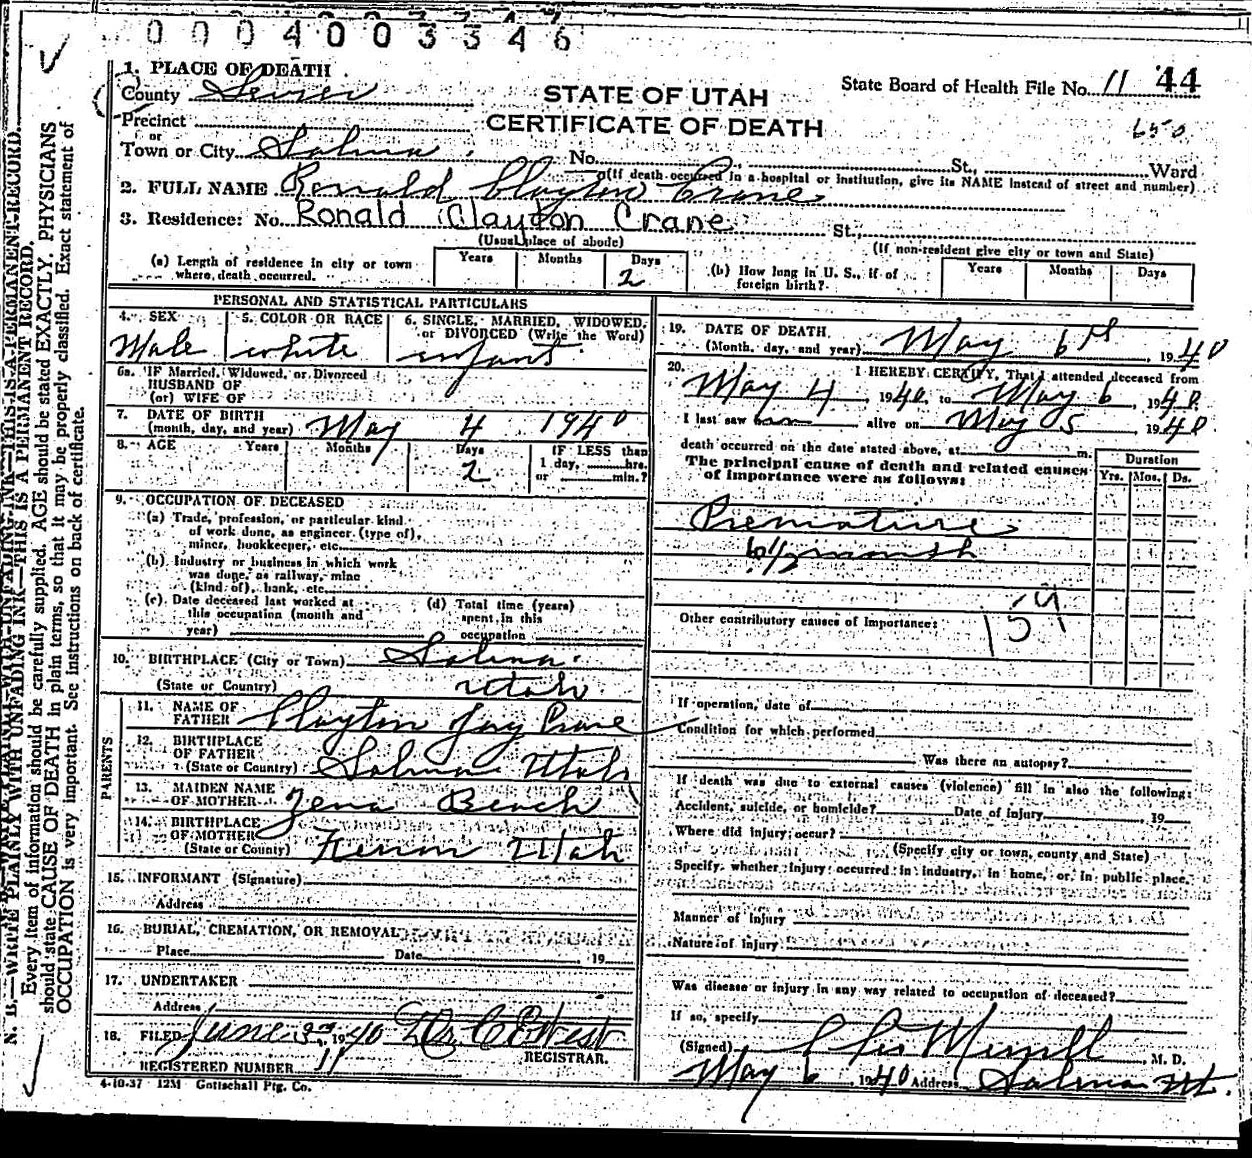 0004003346
1. PLACE OF DEATH
County Sevier
STATE OF UTAH
State Board of Health File No. 11 44
Precinct
CERTIFICATE OF DEATH
650
or
Town or City Salina No. St., Ward
(If death occurred in a hospital or institution, give its NAME instead of street and number)
2. FULL NAME Ronald Clayton Crane
3. Residence: No. Ronald Clayton Crane St.,
(Usual place of abode) (If non-resident give city or town and State)
(a) Length of residence in city or town where death occurred. Years Months Days 2
(b) How long in U. S., if of foreign birth? Years Months Days
PERSONAL AND STATISTICAL PARTICULARS
4. SEX Male
5. COLOR OR RACE white
6. SINGLE, MARRIED, WIDOWED, or DIVORCED (Write the Word) infant
6a. IF Married, Widowed, or Divorced
HUSBAND OF
(or) WIFE OF
7. DATE OF BIRTH
(month, day, and year) May 4 1940
8. AGE Years Months Days 2 IF LESS than
1 day, hrs.
or min.?
9. OCCUPATION OF DECEASED
(a) Trade, profession, or particular kind
of work done, as engineer (type of),
miner, bookkeeper, etc.
(b) Industry or business in which work
was done, as railway, mine
(kind of), bank, etc.
(c) Date deceased last worked at
this occupation (month and
year)
(d) Total time (years)
spent in this
occupation
10. BIRTHPLACE (City or Town) Salina
(State or Country) Utah
PARENTS
11. NAME OF
FATHER Clayton Jay Crane
12. BIRTHPLACE
OF FATHER
(State or Country) Salina Utah
13. MAIDEN NAME
OF MOTHER Zena Beach
14. BIRTHPLACE
OF MOTHER
(State or County) Ferron Utah
15. INFORMANT (Signature)
Address
16. BURIAL, CREMATION, OR REMOVAL
Place Date 19
17. UNDERTAKER
Address
18. FILED June 3rd, 1940 Dr. C E West
REGISTRAR.
REGISTERED NUMBER 11
4-10-37 12M Gottschall Ptg. Co.
19. DATE OF DEATH
(Month, day, and year) May 6th, 1940
20. I HEREBY CERTIFY, That I attended deceased from
May 4, 1940, to May 6, 1940
I last saw him alive on May 5, 1940
death occurred on the date stated above, at m.
The principal cause of death and related causes
of importance were as follows:
Duration
Yrs. Mos. Ds.
Premature
6 1/2 month
159
Other contributory causes of importance:
If operation, date of
Condition for which performed
Was there an autopsy?
If death was due to external causes (violence) fill in also the following:
Accident, suicide, or homicide? Date of injury , 19
Where did injury occur?
(Specify city or town, county and State)
Specify whether injury occurred in industry, in home, or in public place.
Manner of Injury
Nature of Injury
Was disease or injury in any way related to occupation of deceased?
If so, specify
(Signed) M. D.
May 6, 1940 Address Salina Ut.
N. B.—WRITE PLAINLY WITH UNFADING INK—THIS IS A PERMANENT RECORD.
Every item of information should be carefully supplied. AGE should be stated EXACTLY. PHYSICIANS
should state CAUSE OF DEATH in plain terms, so that it may be properly classified. Exact statement of
OCCUPATION is very important. See instructions on back of certificate.